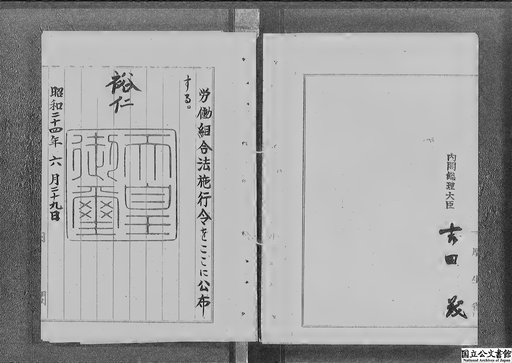 労働組合法施行令をここに公布
する。
裕仁
天皇
御璽
昭和二十四年六月二十九日
内閣総理大臣
吉田茂
国立公文書館
National Archives of Japan